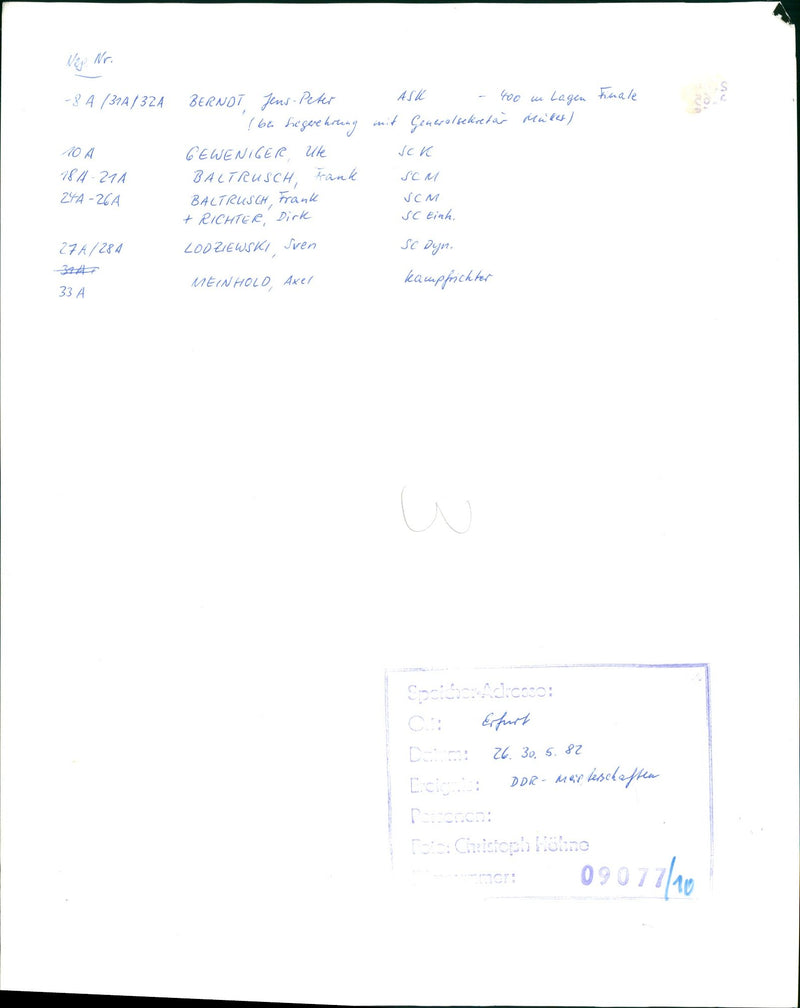 Neg Nr.
-8 A /31A/32A BERNDT, Jens-Peter ASK - 400 m Lagen Finale
(bei Siegerehrung mit Generalsekretär Müller)
10 A GEWENIGER, Ute SCK
18A-21A BALTRUSCH, Frank SCM
24A-26A BALTRUSCH, Frank SCM
+ RICHTER, Dirk SC Einh.
27A/28A LODZIEWSKI, Sven SC Dyn.
31A
33 A MEINHOLD, Axel Kampfrichter
3
Speicher-Adresse:
Ort: Erfurt
Datum: 26. 30. 5. 82
Ereignis: DDR-Meisterschaften
Personen:
Foto: Christoph Höhne
09077/10